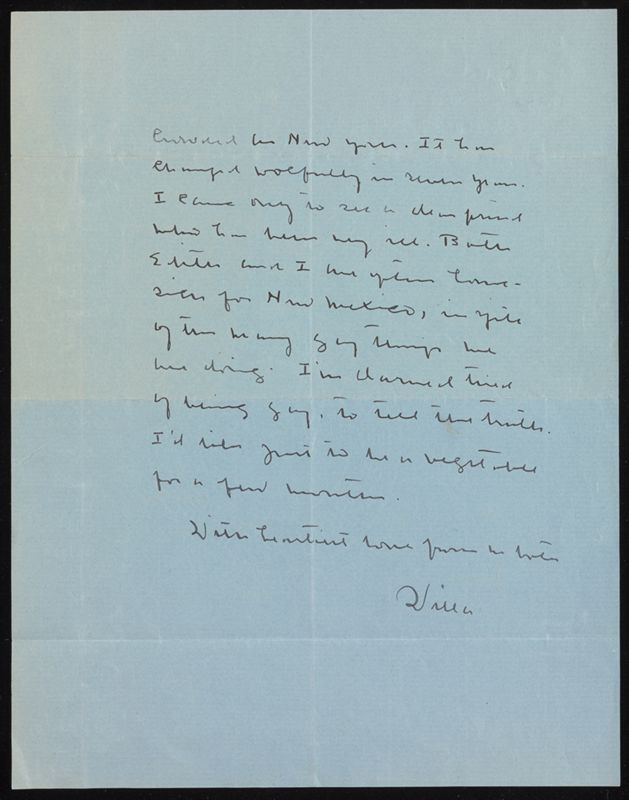 crowded in New York. It has
changed woefully in seven years.
I came only to see a dear friend
who has been very ill. Both
Edith and I are often home-
sick for New Mexico, in spite
of the many gay things we
are doing. I'm darned tired
of being gay, to tell the truth.
I'd like just to be a vegetable
for a few months.
With heartiest love from us both
Willa